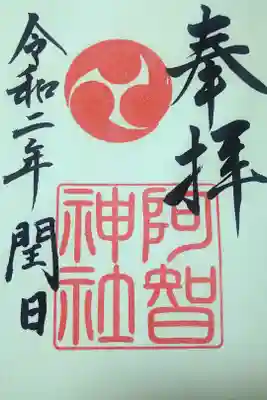 奉拝
阿智
神社
令和二年 閏日